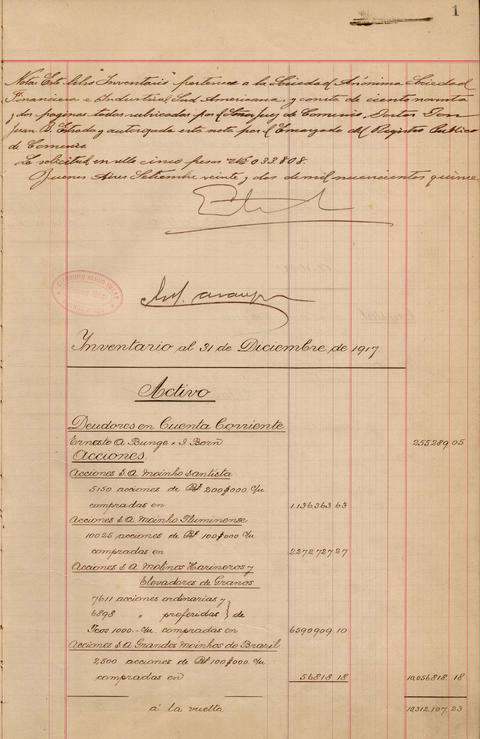 1
Nota: Este libro "Inventario" pertenece a la Sociedad Anónima Sociedad
Financiera e Industrial Sud Americana, y consta de ciento noventa
y dos paginas todas rubricadas por el Señor Juez de Comercio, Doctor Don
Juan A. Estrada y autorizada esta nota por el Encargado del Registro Publico
de Comercio.
La solicitud en sello cinco pesos
Buenos Aires Setiembre veinte y dos de mil nuevecientos quince
Inventario al 31 de Diciembre de 1917.
Activo
Deudores en Cuenta Corriente
Ernesto A. Bunge & J. Born 255289 05
Acciones
Acciones S.A. Moinho Santista
5150 acciones de Rs 200$000 c/u
compradas en 1.136363 63
Acciones S.A. Moinho Fluminense
10025 acciones de Rs 100$000 c/u
compradas en 2272727 27
Acciones S.A. Molinos Harineros y
Elevadores de Granos
7611 acciones ordinarias y
6898 " preferidas } de
Fcos 1000.- c/u. compradas en 6590909 10
Acciones S.A. Grandes Moinhos do Brazil
2500 acciones de Rs 100$000. c/u
compradas en 56818 18 10,056818. 18
á la vuelta 10312.107 23